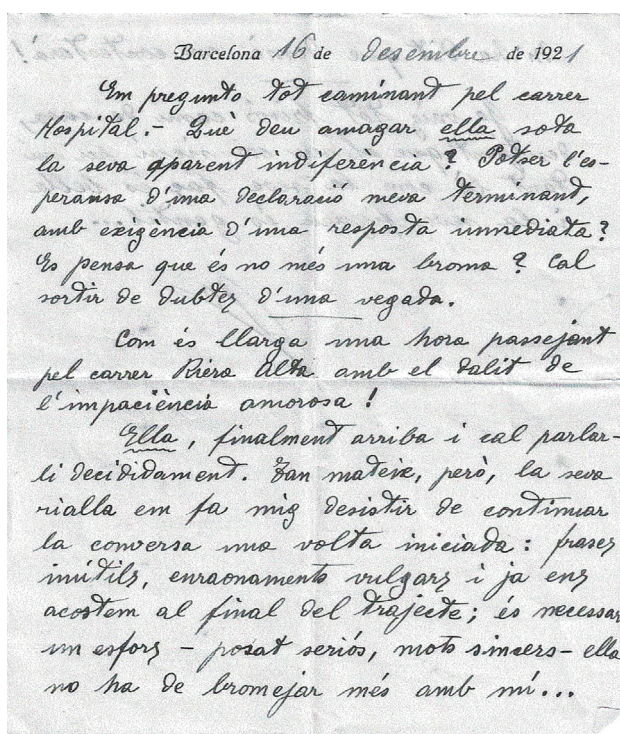 Barcelona 16 de desembre de 1921
Em pregunto tot caminant pel carrer
Hospital.- Què deu amagar ella sota
la seva aparent indiferència? Potser l'es-
peransa d'una declaració meva terminant,
amb exigència d'una resposta immediata?
Es pensa que és no més una broma? Cal
sortir de dubtes d'una vegada.
Com és llarga una hora passejant
pel carrer Riera Alta amb el dalit de
l'impaciència amorosa!
Ella, finalment arriba i cal parlar-
li decididament. Tan mateix, però, la seva
rialla em fa mig desistir de continuar
la conversa una volta iniciada: frases
inútils, enraonaments vulgars i ja ens
acostem al final del trajecte; és necessar
un esforç - posat seriós, mots sincers - ella
no ha de bromejar més amb mi...